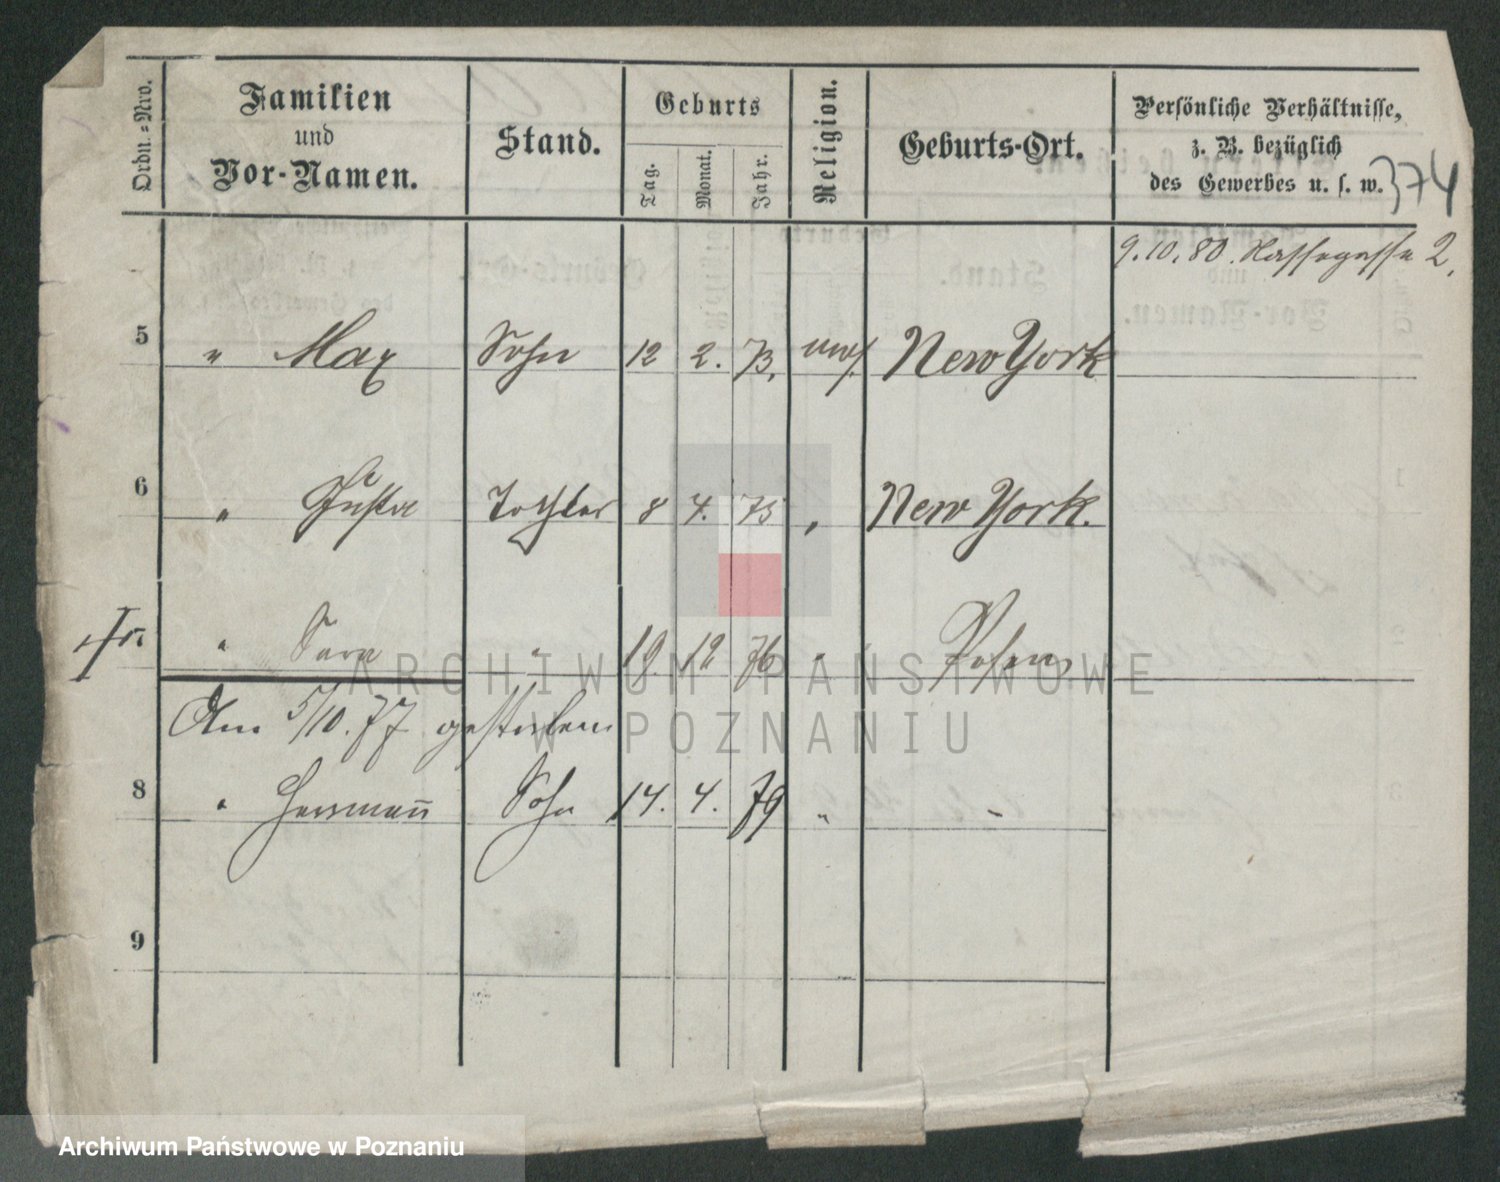 Ordn.=Nro. Familien und Vor-Namen. Stand. Geburts Tag. Monat. Jahr. Religion. Geburts-Ort. Persönliche Verhältnisse, z. B. bezüglich des Gewerbes u. s. w.
374
9.10.80. 2.
5 " Max Sohn 12 2. 73. mos. New York
6 " Gusta Tochter 8 4. 75 " New York.
" Sara " 19. 12 76 " Posen
Am 5/10.77 gestorben
8 " Hermann Sohn 14. 4. 79 " "
9
ARCHIWUM PAŃSTWOWE
W POZNANIU
Archiwum Państwowe w Poznaniu